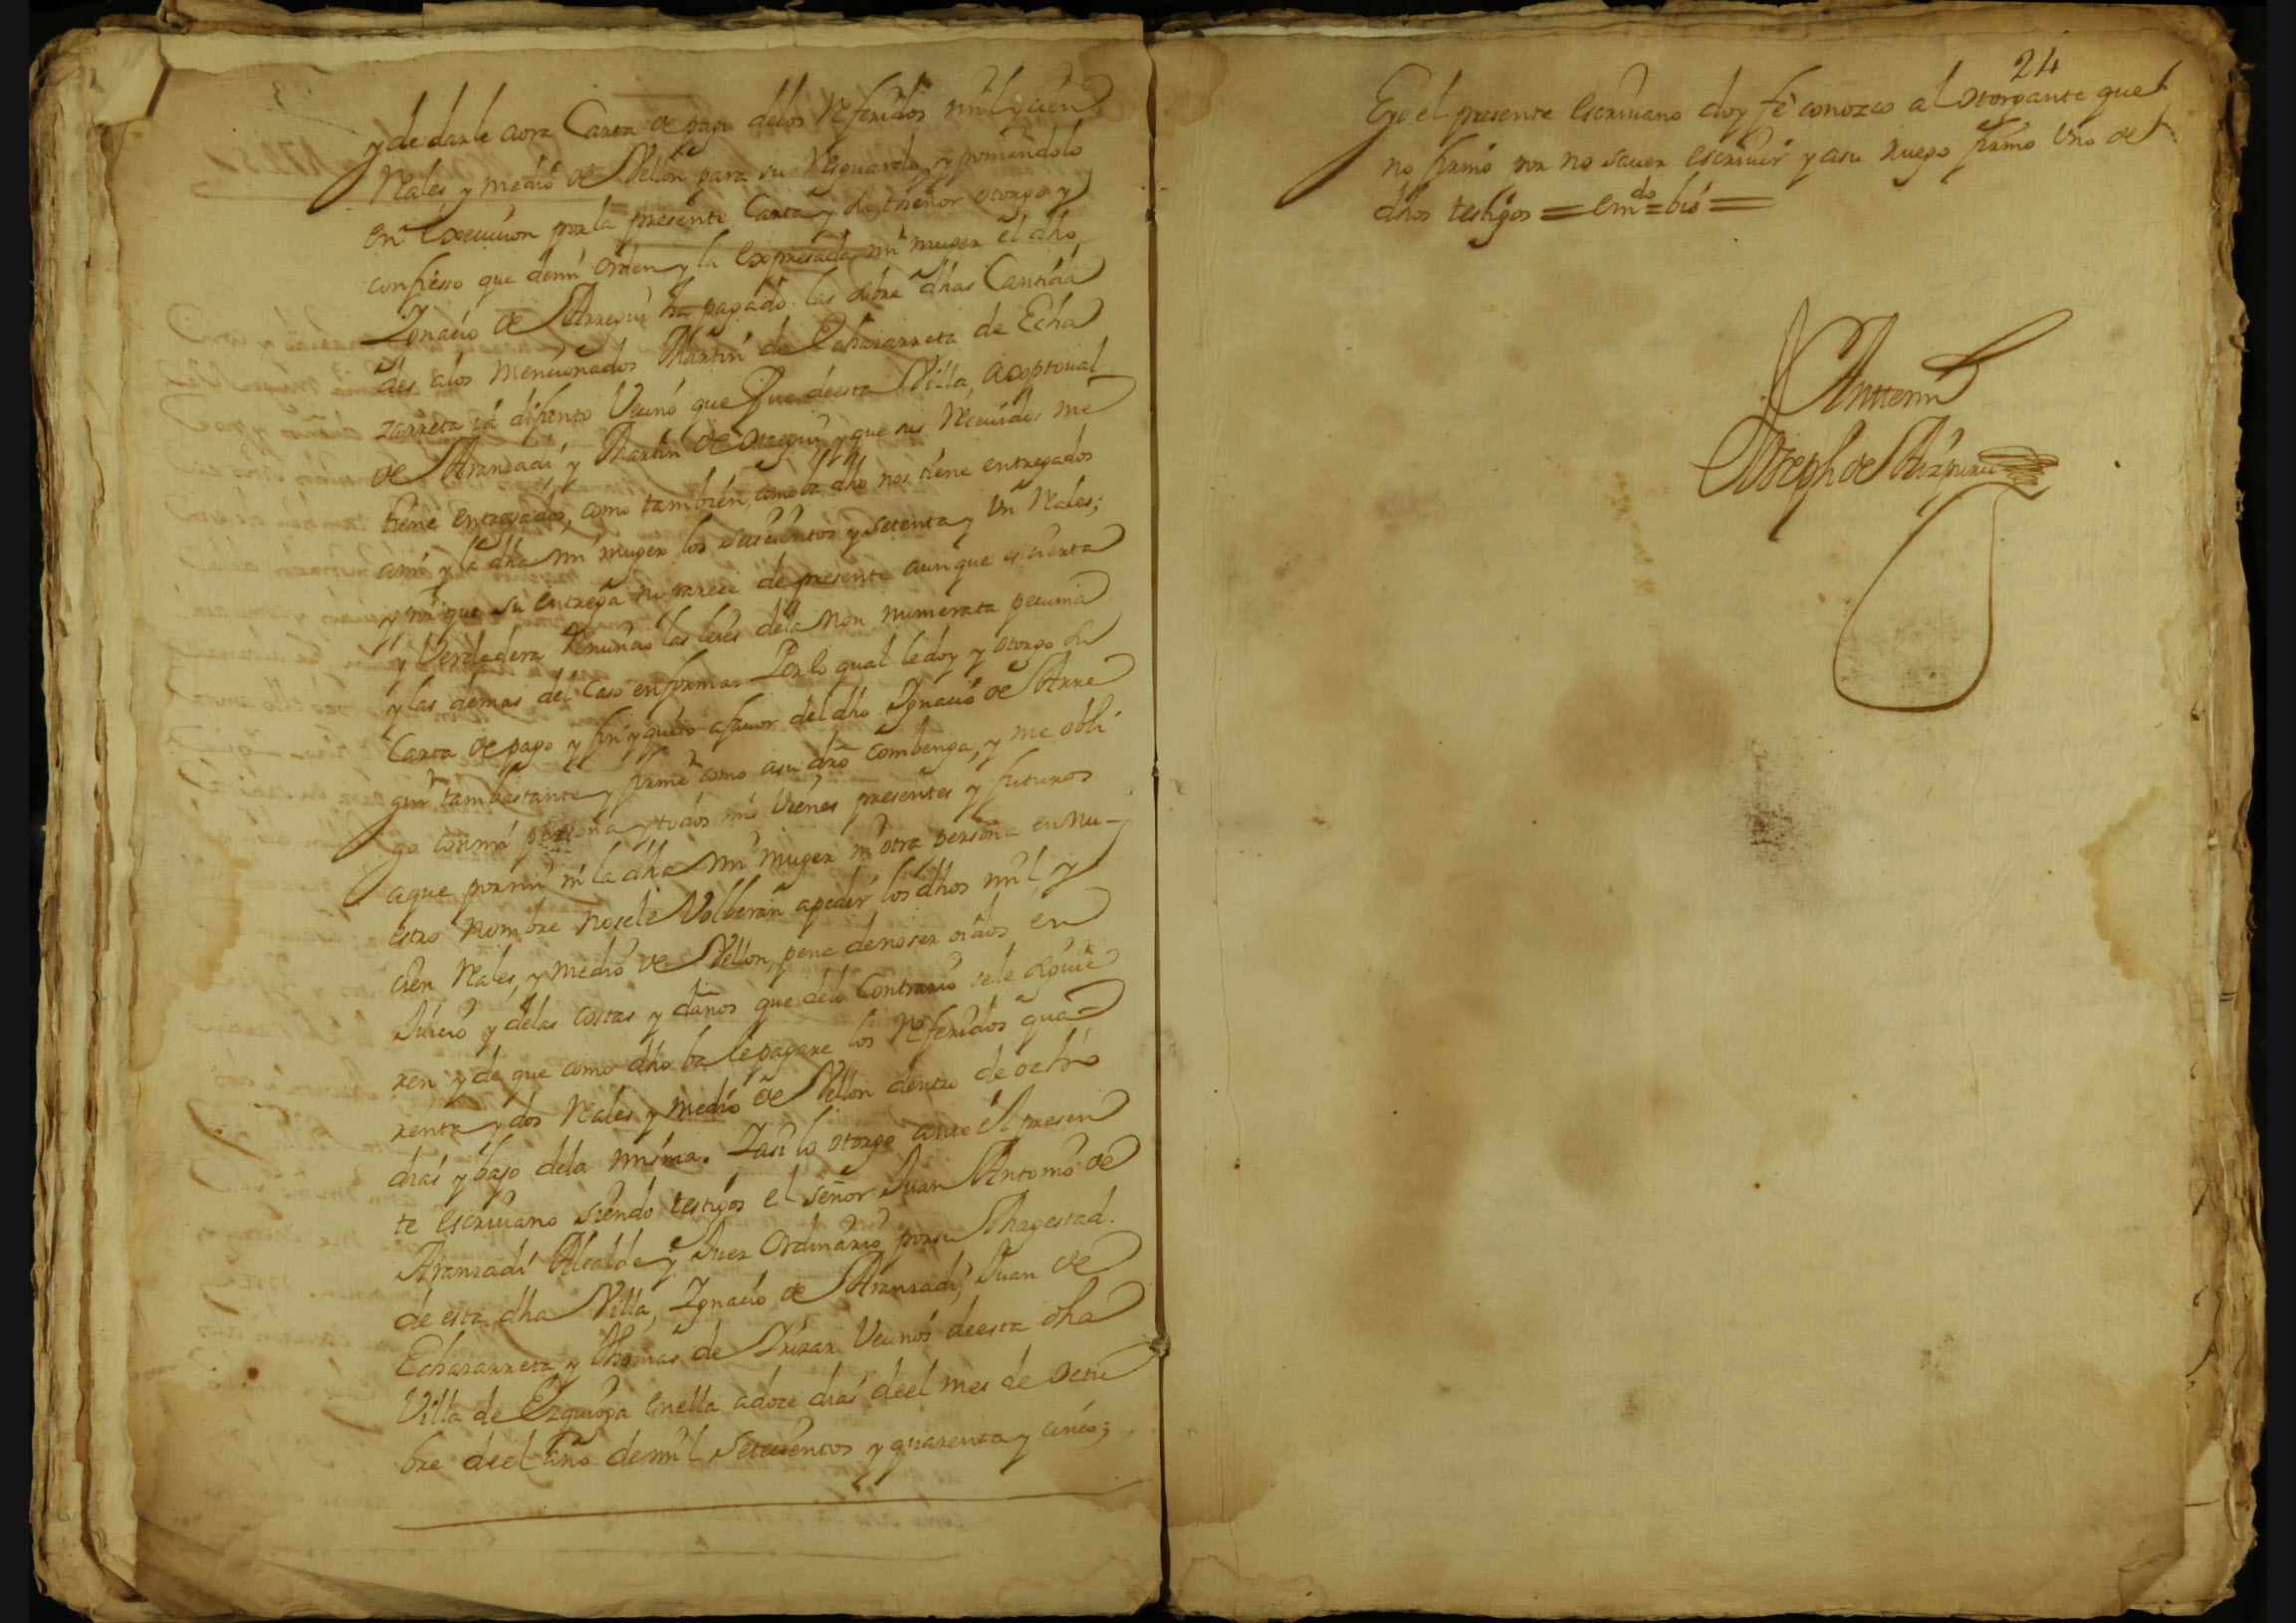 y de darle aora Carta de pago delos Referidos mil y cien
Reales, y medio de Vellon para su Resguardo, y poniendolo
en execucion por la presente Carta y su thenor otorgo y
confiesso que demi orden y la expresada mi muger el dho
Ignacio de Arregui ha pagado las sobre dhas Cantida
des alos mencionados Martin de Echazarreta de Echa
zarreta iá difunto Vecino que fue deesta Villa,
de Aranzadi y Martin de Otaegui y que sus Recividos me
tiene entregados, como tambien, como ba dho nos tiene entregados
ami y la dha mi muger los seiscientos y setenta y un Reales;
y por que su entrega no parece de presente aunque es cierta
y Verdadera Renuncio las leies dela non numerata pecunia
y las demas del Caso en forma. Por lo qual le doy y otorgo su
Carta de pago y fin y quito afauor del dho Ignacio de Arre
gui tan bastante y firme como asu dro combenga, y me obli
go con mi persona y todos mis vienes presentes y futuros
aque por mi ni la dha mi muger ni otra persona en nu-
estro nombre nosele Volberan apedir los dhos mil y
cien Reales, y medio de Vellon, pena denoser oidos en
Juicio y delas costas y daños que delo Contrario sele siguie
ren y de que como dho ba le pagare los Referidos qua
renta y dos Reales y medio de Vellon dentro de ocho
dias y bajo dela misma. Iasi lo otorgo ante el presen
te escriuano siendo testigos el señor Juan Antonio de
Aranzadi Alcalde y Juez Ordinario por su Magestad.
de esta dha Villa, Ignacio de Aranzadi, Juan de
Echazarreta y Thomas de Irizar Vecinos deesta dha
Villa de Ezquioga enella adoce dias deel mes de octu
bre deel año demil setecientos y quarenta y cinco;
24
Eyo el presente escriuano doy fe conozco al otorgante que
no firmó por no sauer escriuir y asu ruego firmo Uno de
dhos testigos = emdo = bió =
Ante mi
Joseph de Aizpuru